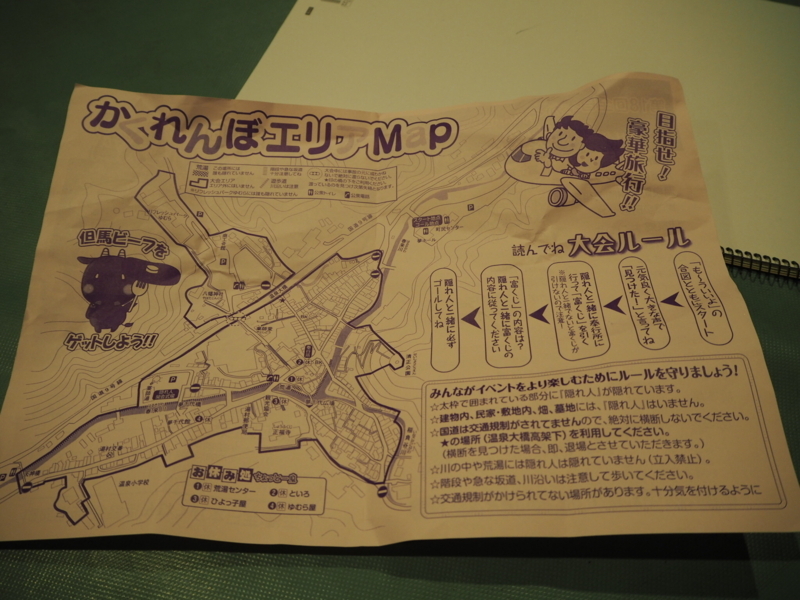 かくれんぼエリアMap
目指せ!
豪華旅行!!
但馬ビーフを
ゲットしよう!!
読んでね 大会ルール
「もういいよ」の
合図とともにスタート
元気良く大きな声で
「見つけた!」と言ってね
隠れ人と一緒に奉行所に
行って「富くじ」を引く
「富くじ」の内容は?
隠れ人と一緒に富くじの
内容に従ってください
隠れ人と一緒に必ず
ゴールしてね
みんながイベントをより楽しむためにルールを守りましょう!
☆太枠で囲まれている部分に「隠れ人」が隠れています。
☆建物内、民家・敷地内、畑、墓地には、「隠れ人」はいません。
☆国道は交通規制がされてませんので、絶対に横断しないでください。
★の場所(温泉大橋高架下)を利用してください。
(横断を見つけた場合、即、退場とさせていただきます。)
☆川の中や荒湯には隠れ人は隠れていません(立入禁止)。
☆階段や急な坂道、川沿いは注意して歩いてください。
☆交通規制がかけられてない場所があります。十分気を付けるように
お休み処
1 荒湯センター
2 といろ
3 ひよっ子屋
4 ゆむら屋
温泉小学校
八幡神社
正福寺
荒湯